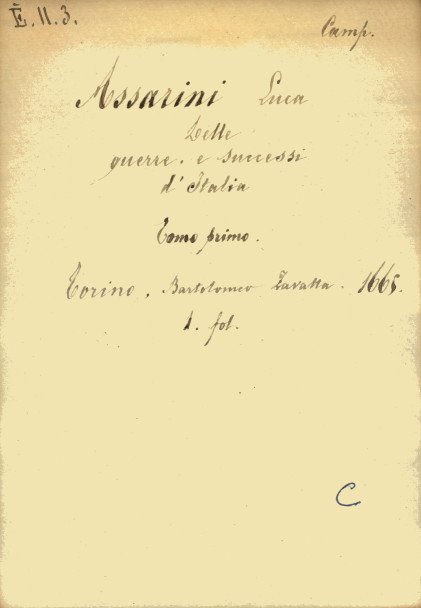 E. II. 3.
Camp.
Assarini Luca
Delle
guerre. e successi
d'Italia
Tomo primo.
Torino. Bartolomeo Zavatta. 1665.
1. fol.
C